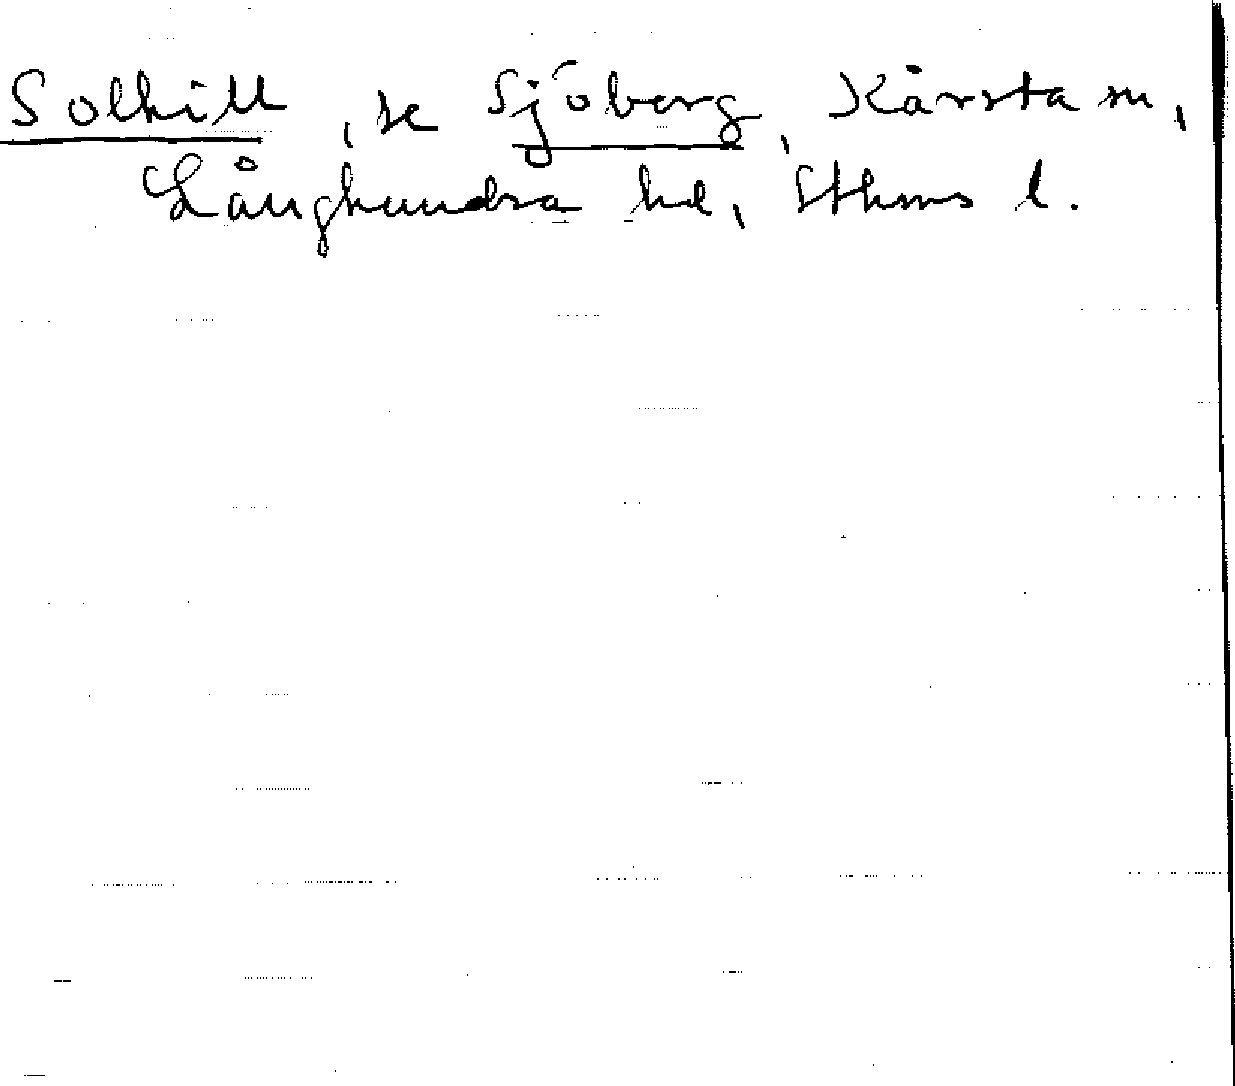 Solhäll, se Sjöberg, Kårsta sn,
Långhundra hd, Sthms l.